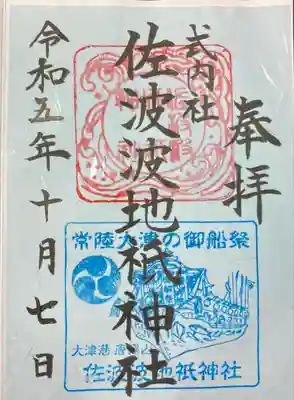 奉拝
式内社
佐波波地祇神社
令和五年十月七日
常陸大津の御船祭
佐波波地祇神社